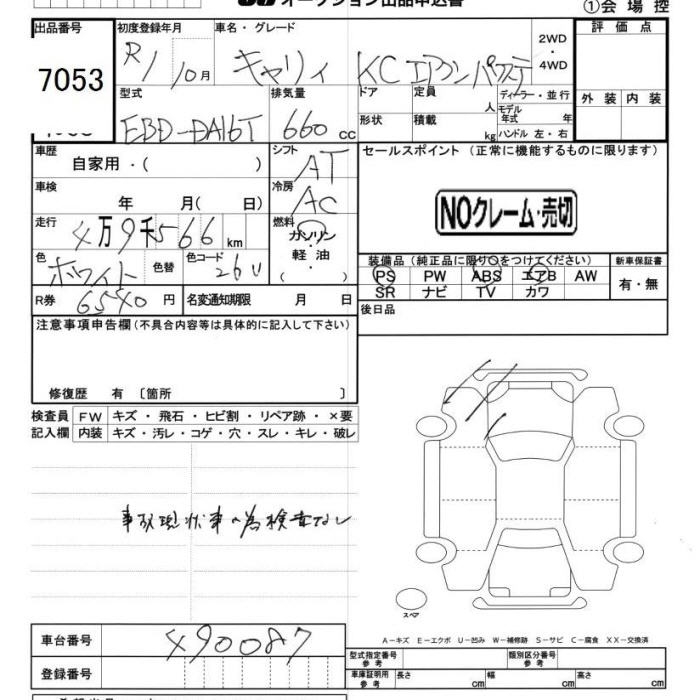 オークション出品申込書
①会場控
出品番号 初度登録年月 車名・グレード 評価点
7053 R1 10月 キャリイ KCエアコンパワステ 2WD・4WD
型式 排気量 ドア 定員 人 ディーラー・並行 外装 内装
EBD-DA16T 660cc 形状 積載 kg モデル年式 年 ハンドル 左・右
車歴 自家用・( ) シフト AT セールスポイント (正常に機能するものに限ります)
車検 年 月( 日) 冷房 AC NOクレーム・売切
走行 4万9千566km 燃料 ガソリン・軽油・( ) 装備品(純正品に限り○をつけてください) 新車保証書
色 ホワイト 色替 色コード 26U PS PW ABS エアB AW 有・無
SR ナビ TV カワ
R券 6540円 名変通知期限 月 日 後日品
注意事項申告欄(不具合内容等は具体的に記入して下さい)
修復歴 有 〔箇所 〕
検査員 FW キズ・飛石・ヒビ割・リペア跡・×要
記入欄 内装 キズ・汚レ・コゲ・穴・スレ・キレ・破レ
事故現状車の為検査なし
スペア
車台番号 490087 A-キズ E-エクボ U-凹み W-補修跡 S-サビ C-腐食 XX-交換済
型式指定番号 参考 類別区分番号 参考
登録番号 車庫証明用 参考 長さ cm 幅 cm 高さ cm